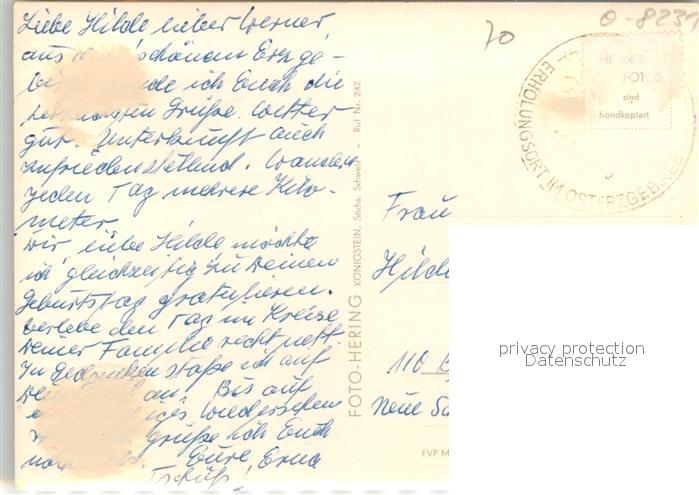 Liebe Hilde lieber Werner,
aus schönen Erzge-
ich Euch die
Grüße. Wetter
gut. Unterkunft auch
zufriedenstellend. Wandern
jeden Tag mehrere Kilo-
meter.
Dir liebe Hilde möchte
ich gleichzeitig zu Deinem
Geburtstag gratulieren.
Verlebe den Tag im Kreise
Deiner Familie recht nett.
In Gedanken stoße ich auf
an. Bis auf
Wiedersehen
grüße ich Euch
Eure Erna
Tschüß!
FOTO-HERING KÖNIGSTEIN, Sächs. Schweiz - Ruf Nr. 242
70
O-8231
HERING
FOTOS
sind
handkopiert
ERHOLUNGSORT IM OSTERZGEBIRGE
Frau
110
Neue
EVP M
privacy protection
Datenschutz